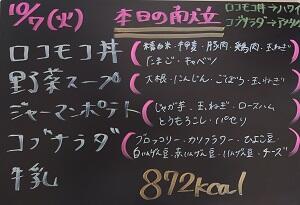 10/7(火) 本日の献立
ロコモコ丼→ハワイ
コブサラダ→アメリ
ロコモコ丼
精白米・押麦・豚肉・鶏肉・玉ねぎ
たまご・キャベツ
野菜スープ
大根・にんじん・ごぼう・玉ねぎ
ジャーマンポテト
じゃが芋・玉ねぎ・ロースハム
とうもろこし・パセリ
コブサラダ
ブロッコリー・カリフラワー・ひよこ豆・
白いんげん豆・赤いんげん豆・いんげん豆・チーズ
牛乳
872kcal